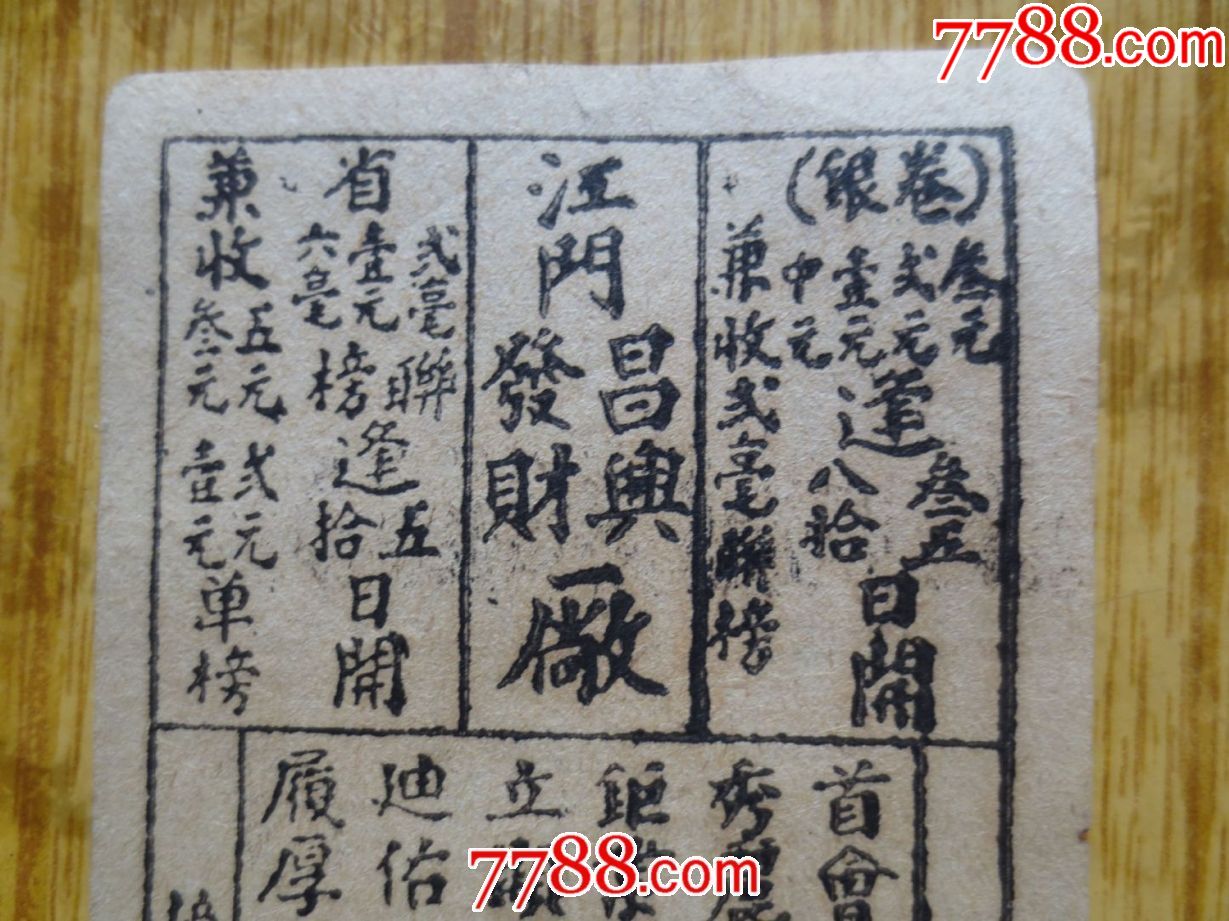 7788.com
(銀卷)
叁元
弍元
壹元
中元
逢
叁五
八拾
日開
兼收弍毫聯榜
江門
昌興
發財
廠
省
弍毫聯
壹元
六毫榜
逢
五
拾
日開
兼收
五元弍元
叁元壹元
单榜
首會
秀
鉅
立
迪佑
履厚
7788.com